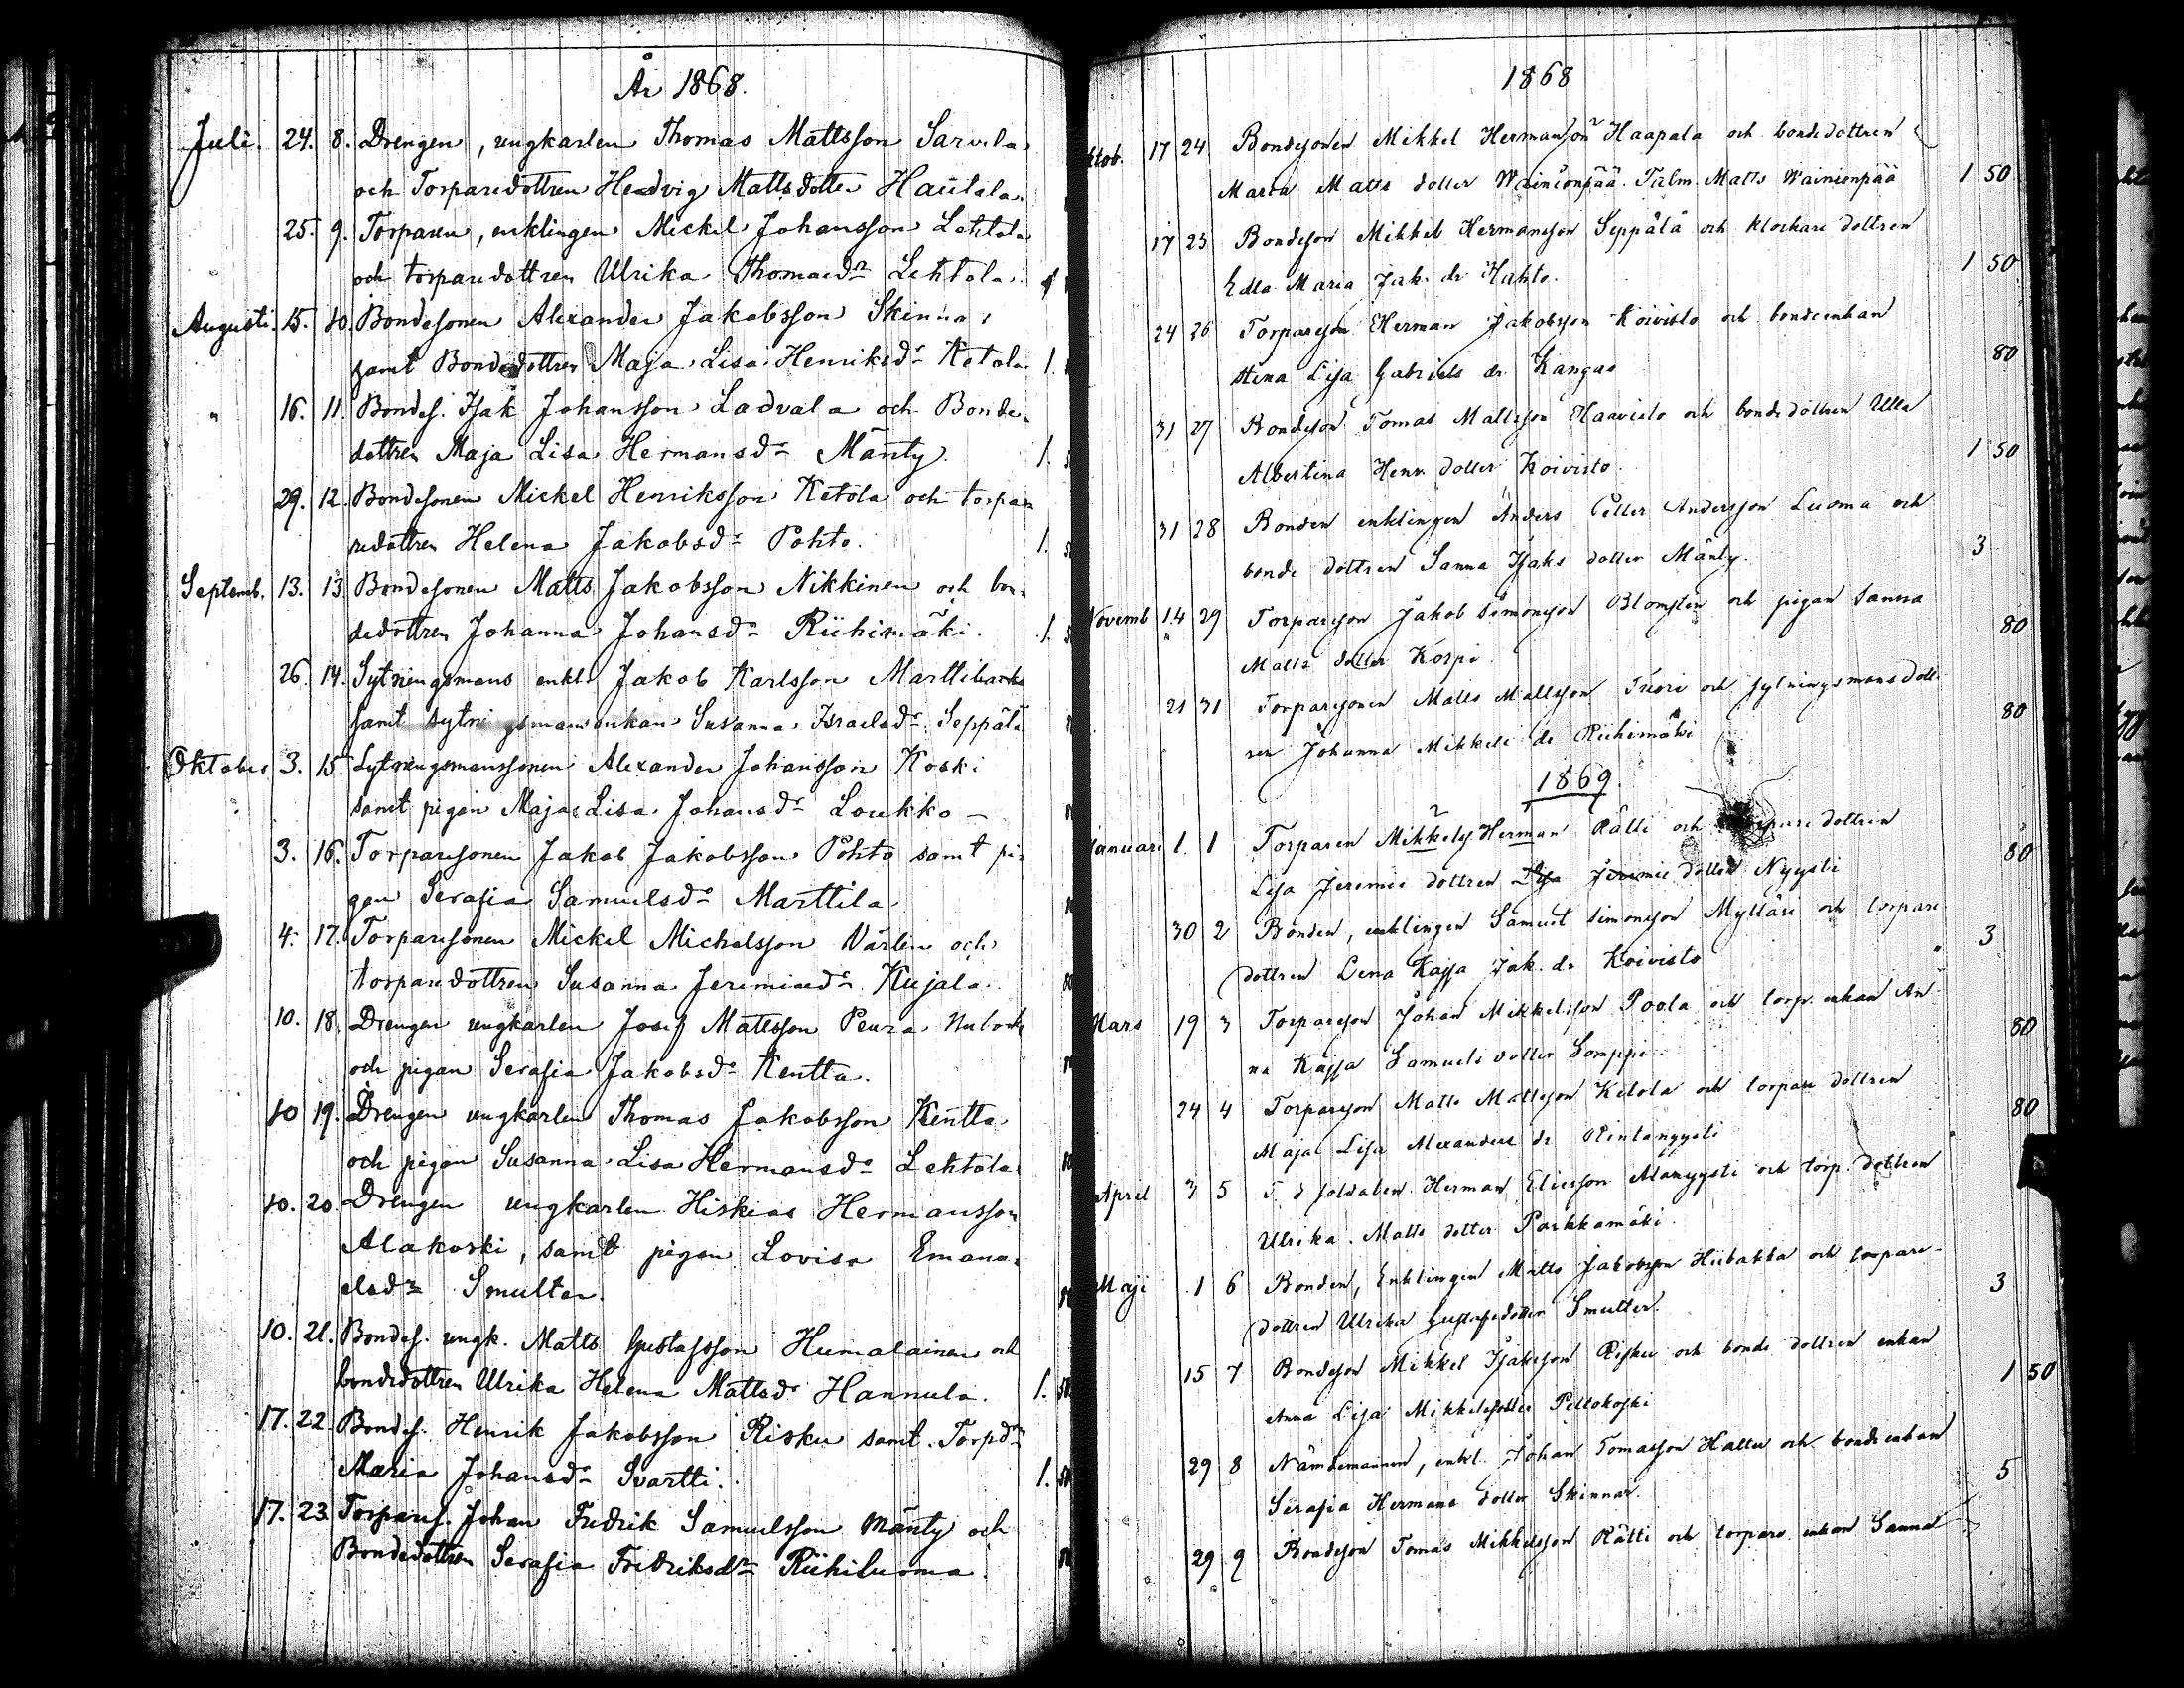 År 1868.
Juli. 24. 8. Drengen, ungkarlen Thomas Mattsson Sarvela
och Torparedottren Hedvig Mattsdotter Hautala.
25. 9. Torparen, enklingen Mickel Johansson Lehtola
och torparedottren Ulrika Thomasdr Lehtola.
Augusti. 15. 10. Bondesonen Alexander Jakobsson Skinnar
samt Bondedottren Maja Lisa Henriksdr Ketola 1.
" 16. 11. Bondes. Isak Johansson Ladvala och Bonde-
dottren Maja Lisa Hermansdr Mänty. 1.
29. 12. Bondesonen Mickel Henriksson Ketola och torpa-
redottren Helena Jakobsdr Pohto. 1.
Septemb. 13. 13 Bondesonen Matts Jakobsson Nikkinen och bon-
dedottren Johanna Johansdr Riihimäki. 1.
26. 14. Sytningsmans enkl. Jakob Karlsson Marttiback
samt sytningsmansenkan Susanna Israelsdr Seppälä
Oktober 3. 15. Sytningsmanssonen Alexander Johansson Koski
samt pigan Maja Lisa Johansdr Loukko –
3. 16. Torparesonen Jakob Jakobsson Pohto samt pi-
gan Serafia Samuelsdr Marttila
4. 17. Torparesonen Mickel Michelsson Värlin och
torparedottren Susanna Jeremiasdr Kujala.
10. 18. Drengen ungkarlen Josef Mattsson Peura
och pigan Serafia Jakobsdr Kentta.
10 19. Drengen ungkarlen Thomas Jakobsson Kentta
och pigan Susanna Lisa Hermansdr Lehtola
10. 20. Drengen ungkarlen Hiskias Hermansson
Alakoski, samt pigan Lovisa Emanu-
elsdr Smulter.
10. 21. Bondes. ungk. Matts Gustafsson Humalainen och
bondedottren Ulrika Helena Mattsdr Hannula. 1. 50
17. 22. Bondes. Henrik Jakobsson Risku samt Torpdrn
Maria Johansdr Svartti. 1. 50
17. 23. Torpares. Johan Fredrik Samuelsson Mänty och
Bondedottren Serafia Fredriksdr Riihiluoma.
1868
ktob. 17 24 Bondesonen Mikkel Hermansson Haapala och bondedottren
Maria Matts dotter Wainionpää. Matts Wainionpää 1 50
17 25 Bondeson Mikkel Hermansson Seppälä och klockare dottren
Edla Maria Jak. dr Hahto. 1 50
24 26 Torpareson Herman Jakobsson Koivisto och bondeenkan
Stina Lisa Gabriels dr Kangas 80
31 27 Bondeson Tomas Mattsson Haavisto och bondedottren Ulla
Albertina Henr. dotter Koivisto. 1 50
31 28 Bonden enklingen Anders Petter Andersson Luoma och
bonde dottren Sanna Isaks dotter Mänty. 3
Novemb 14 29 Torpareson Jakob Simonsson Blomsten och pigan Sanna
Matts dotter Korpi 80
21 31 Torparesonen Matts Mattsson Tuori och sytningsmans dott-
ren Johanna Mikkels dr Riihimäki 80
1869
Januari 1. 1 Torparen Mikkelss. Herman Rätti och torpare dottren
Lisa Jeremie dottren Lisa Jeremie dotter Nyysti 80
30 2 Bonden, enklingen Samuel Simonsson Myllari och torpare
dottren Lena Kajsa Jak. dr Koivisto 3
Mars 19 3 Torpareson Johan Mikkelsson Poola och torp. enkan An-
na Kajsa Samuels dotter Somppi. 80
24 4 Torpareson Matts Mattsson Ketola och torpare dottren
Maja Lisa Alexanders dr Rintanyysti 80
April 3 5 F. d. soldaten Herman Eliesson Alanyysti och torp. dottren
Ulrika Matts dotter Parkkamäki.
Maji 1 6 Bonden, Enklingen Matts Jakobsson Hiibakka och torpare-
dottren Ulrika Gustafsdotter Smulter. 3
15 7 Bondeson Mikkel Isaksson Risku och bonde dottren enkan
Anna Lisa Mikkelsdotter Peltokoski 1 50
29 8 Nämdemannen, enkl. Johan Tomasson Haltu och bondeenkan
Serafia Hermans dotter Skinnar. 5
29 9 Bondeson Tomas Mikkelsson Rätti och torpare enkan Sanna